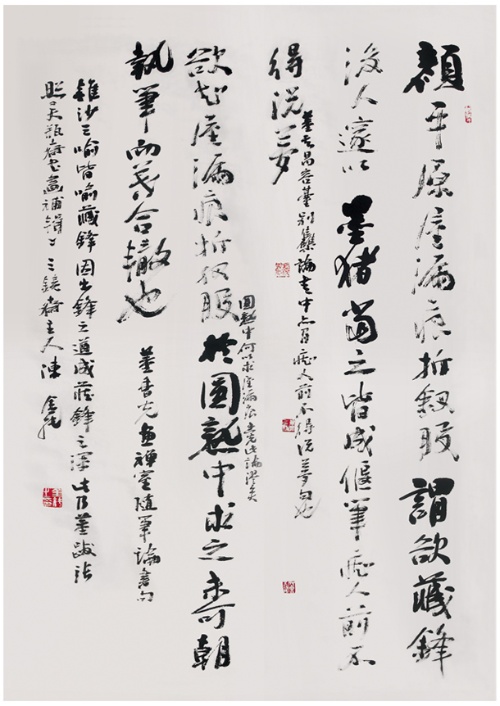 顏平原屋漏痕折釵股謂欲藏鋒
後人遂以墨猪當之皆成偃筆癡人前不
得说夢
董其昌容臺別集論書中亦有癡人前不得说夢句也
欲知屋漏痕折釵股於圓熟中求之未可朝
圓熟中何以求屋漏 此論謬矣
執筆而暮合轍也
董香光畫禪室隨筆論書句
錐沙之喻皆喻藏鋒因出鋒之道成藏鋒之深此乃董跋語
天瓶齋書畫補 主人陳